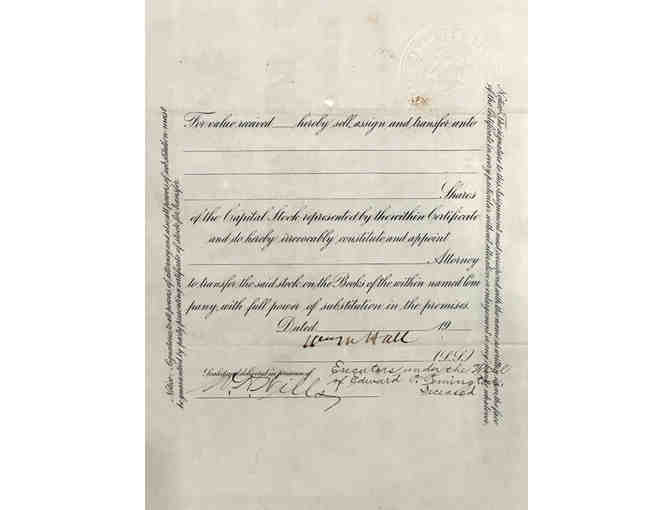 For value received ___ hereby sell, assign and transfer unto
Shares
of the Capital Stock represented by the within Certificate
and do hereby irrevocably constitute and appoint
Attorney
to transfer the said stock on the Books of the within named Com
pany, with full power of substitution in the premises.
Dated 19
Hall
Sealed and delivered in presence of
Executors under the Will
of Edward
Deceased
Hills
Notice: Signatures to all powers of attorney and also all powers of substitution must
be guaranteed by party presenting certificate of stock for transfer.
Notice: The signature to this Assignment must correspond with the name as written upon the face
of the Certificate in every particular without alteration or enlargement or any change whatever.